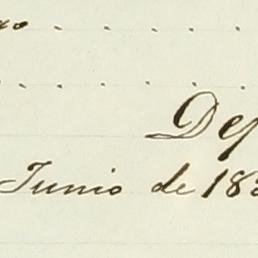 Dep
Junio de 18